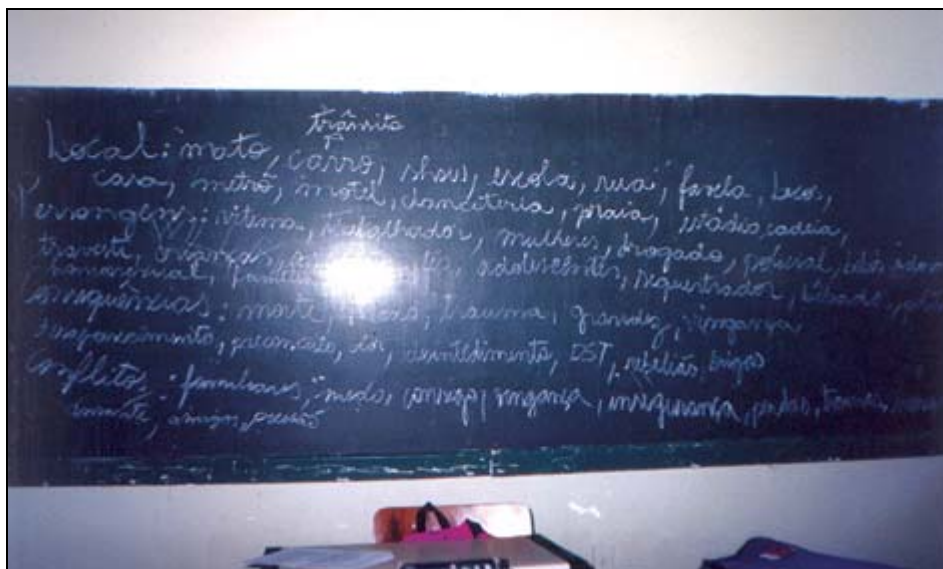 trânsito
Local: mato, carro, show, escola, rua, favela, beco,
casa, metrô, motel, danceteria, praia, estádio, cadeia,
Personagens: vítima, trabalhador, mulheres, drogado, policial,
travesti, crianças, adolescentes, sequestrador,
homossexual,
consequências: morte, trauma, gravidez, vingança
desaparecimento, preconceito, dor, desintedimento, DST, rebelião, brigas
Conflitos: familiares, medo, consigo, vingança, insegurança, perdas,
amigos, pressão